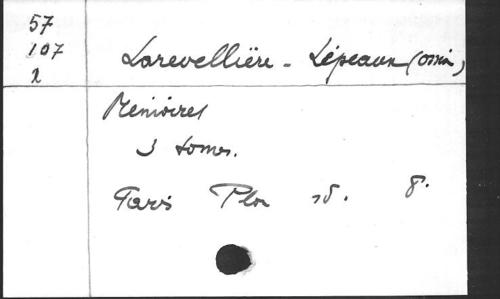 57
107
2
Larevellière - Lépeaux (
Mémoires
3 tomes.
Paris Plon sd. 8.